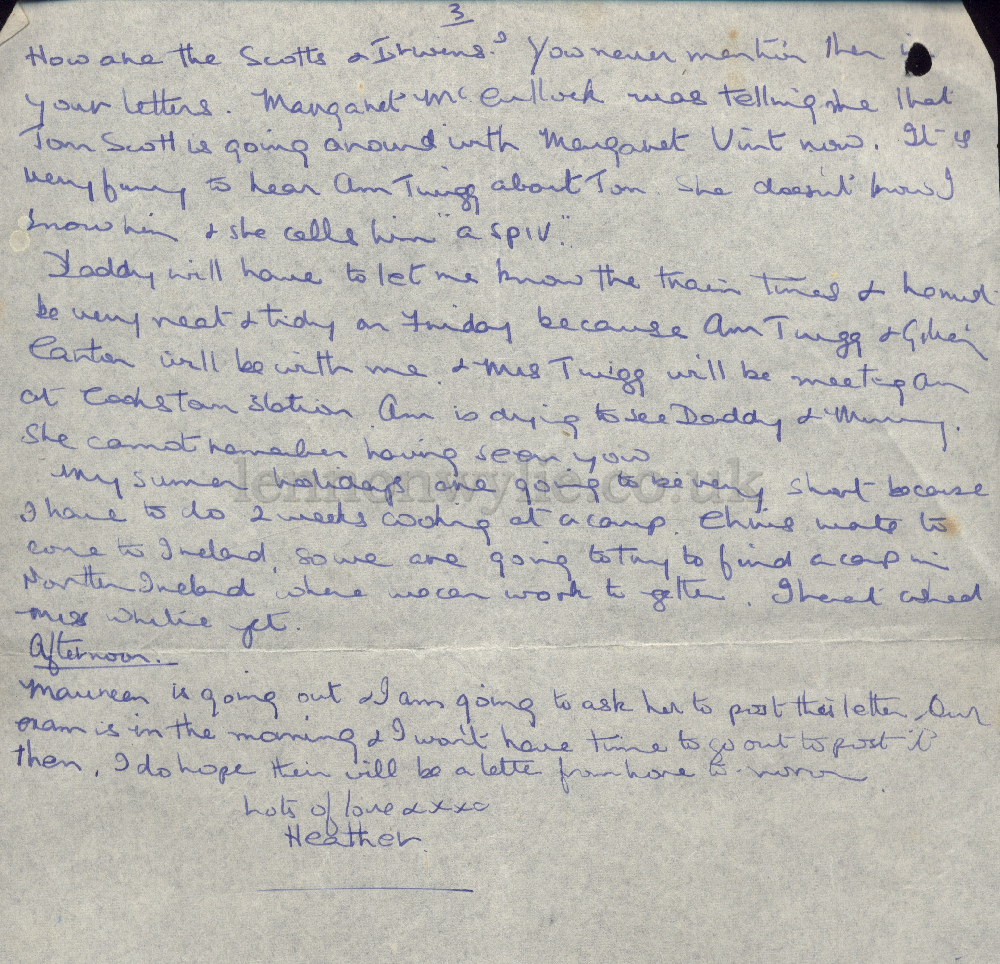 3
How are the Scotts & Irwins? You never mention them in
your letters. Margaret McCullock was telling me that
Tom Scott is going around with Margaret Vint now. It is
very funny to hear Ann Twigg about Tom. She doesn't know I
know him & she calls him "a spiv".
Daddy will have to let me know the train times &
be very neat & tidy on Friday because Ann Twigg &
Canton will be with me. & Mrs Twigg will be meeting Ann
at Cookstown station. Ann is dying to see Daddy & Mummy.
She cannot remember having seen you
My summer holidays are going to be very short because
I have to do 2 weeks cooking at a camp. Chris wants to
come to Ireland, so we are going to try to find a camp in
Northern Ireland where we can work together. I havent asked
Miss yet.
Afternoon.
Maureen is going out & I am going to ask her to post this letter. Our
exam is in the morning & I won't have time to go out to post it
then. I do hope their will be a letter from home to-morrow
Lots of love & xxx
Heather.
lennonwylie.co.uk